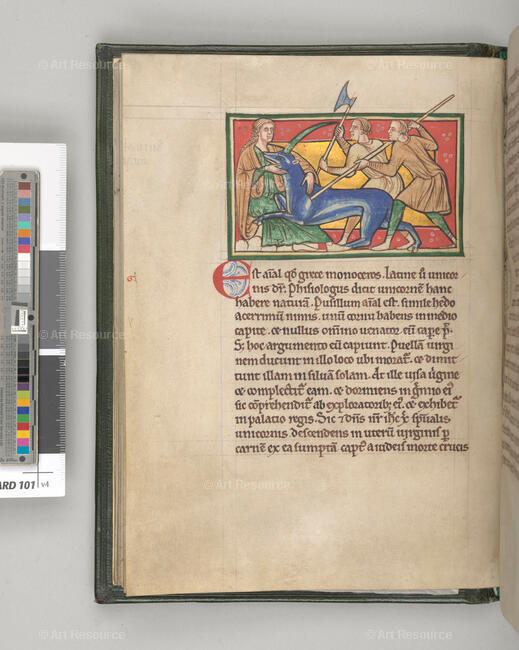 © Art Resource
© Art Resource
Est aĩal qđ grece monoceros. latine ũ unicor
nis dr̃. Phisiologus dicit unicornē hanc
habere naturā. Pusillum aĩal est. simile hedo
acerrimũ nimis. unũ cornu habens in medio
capite. et nullus omnino uenator. eũ capere p̃.
S; hoc argumento eũ capiunt. Puellā uirgi
nem ducunt in illo loco ubi morat̃. et dimit
tunt illam in siluā solam. At ille uisa uirgine
et complectit̃ eam. et dormiens in gremio ei
sic cõprehendit̃ ab exploratorib; ei. et exhibet̃
in palacio regis. Sic 7 dñs nr̃ ihc x̃ spiritalis
unicornis. descendens in uterũ uirginis p
carnē ex ea sumptā. capt a iudeis morte crucis
ARD 101 v4
© Art Resource
© Art Resource
© Art Resource
© Art Resource